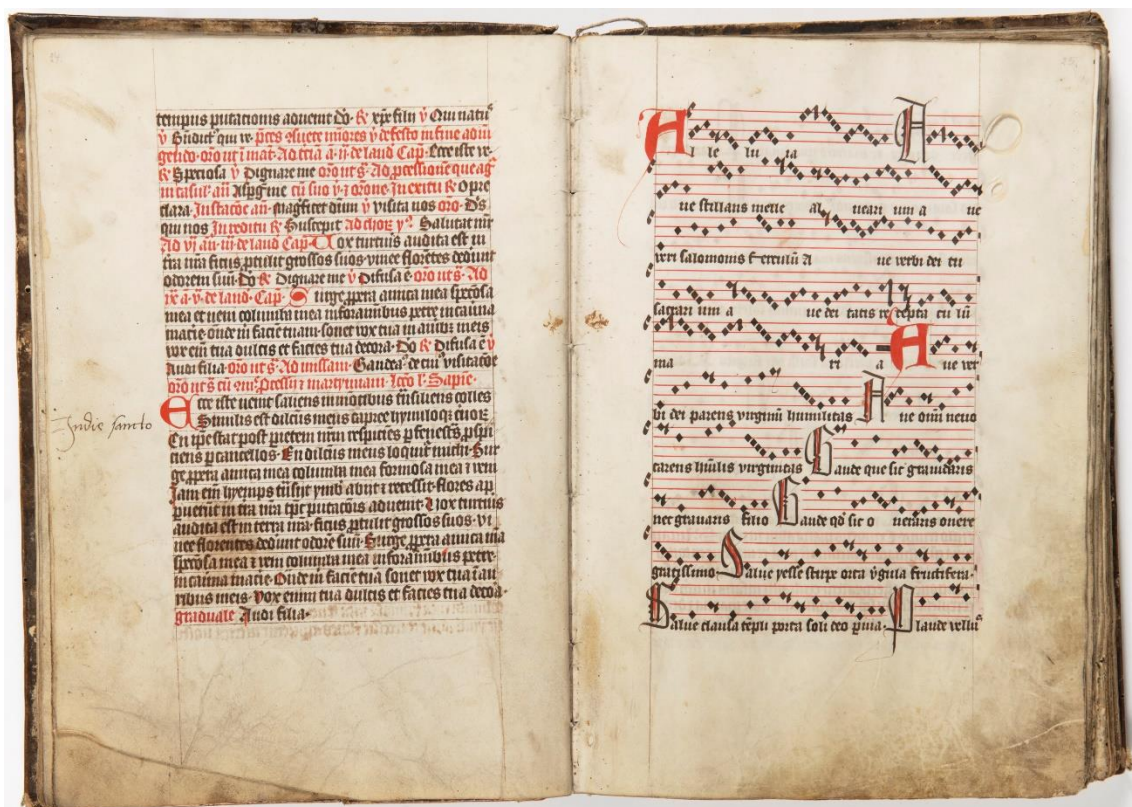 tempus putationis advenit Do R xpe fili y Qui natu
y Bndict qui re ptes Auete mores y de festo in fine adiu
gendo oro ut i mat Ad tcia a y de laud Cap Ecce iste ve
R Speciosa y Dignare me oro ut s Ad pcessione que agit
in casul an Aspge me cu suo y orone In exitu R O pre
clara In stacoe an Magficet dnm y visita nos oro Ds
qui nos In reditu R Suscepit Ad hor y Salutat mr
Ad vi an de laud Cap Vox turturis audita est in
tra nra ficus ptulit grossos suos vinee floretes dedunt
odorem suu Do R Dignare me y Difusa e oro ut s Ad
ix a y de laud Cap Surge ppera amica mea specosa
mea et veni columba mea in foraminibus petre in cauina
macie onde m facie tuam sonet vox tua in aurib meis
vox eni tua dulcis et facies tua decora Do R Difusa e y
Audi filia oro ut s Ad missam Gaudeam de tm visitacoe
oro ut s cu Pcessi et martyniani lco l Sapie
Ecce iste venit saliens in motibus tnsiliens colles
Similis est dilcus meus capree hynuloq cuor
En ipe stat post parietem nrm respicies p fenestr pspi
ciens p cancellos En dilcus meus loquit michi Sur
ge ppera amica mea columba mea formosa mea et veni
Jam eni hyemps tnsijt ymb abijt et recessit flores app
paruerut in tra nra tps putacois advenit Vox turturis
audita est in terra nra ficus ptulit grossos suos vi
nee florentes dedunt odore suu Surge ppera amica mea
specosa mea et veni columba mea in foraminibus petre
in cauina macie Onde m facie tua sonet vox tua i au
ribus meis vox enim tua dulcis et facies tua decora
graduale Audi filia
In die sancto
Al le lu ia A
ue stillans melle al ueari um a ue
veri salomonis ferculu A ue verbi dei tu
sacrari um a ue dei tatis re cepta cu lu
ma ri a Aue ver
bi dei parens virginu humilitas Aue omni neuo
carens humilis virginitas Gaude que sic grauidaris
nec grauans filio Gaude qd sic o nerans onere
gratissimo Salue yesse stirpe orta vgula fructifera
Salue clausa tepli porta soli deo puia Plaude vellu